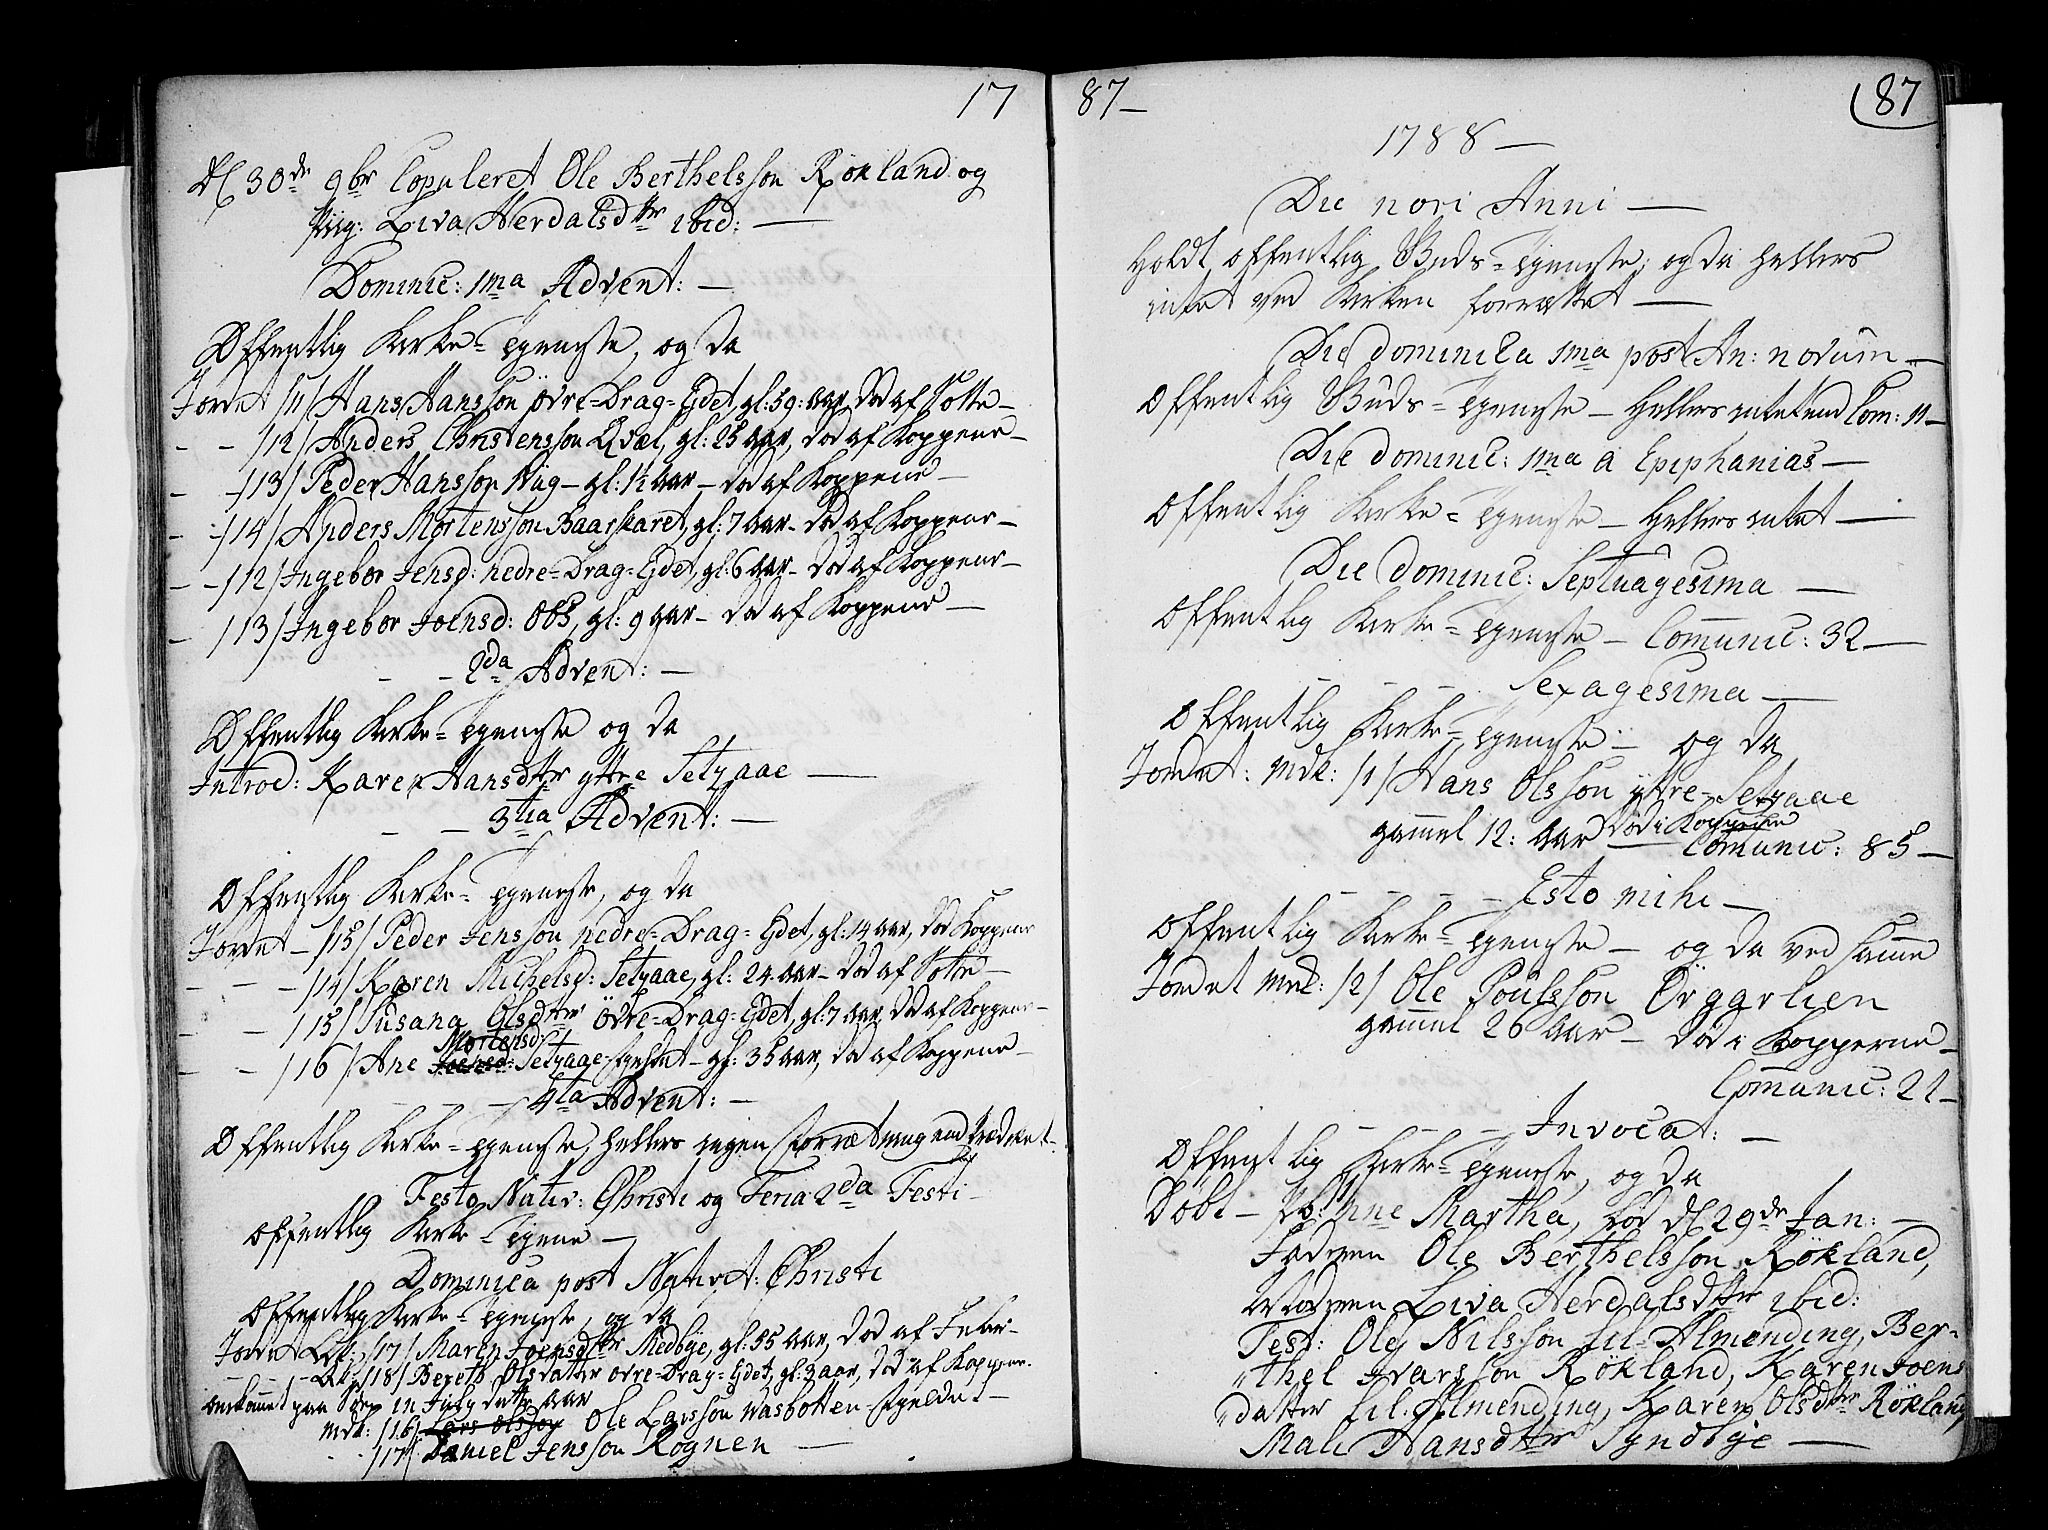 17
D 30de 9br Copuleret Ole Berthelsson Rökland og
Piig: Liva Herdalsdttr ibid: —
Dominic: 1ma Advent: —
Offentlig Kirke-Tjeneste, og da
Jordet /11/ Hans Hansson övre-Drag-Eidet, gl: 59: aar, död af Sotte —
- - /12/ Anders Christensson Qvæl, gl: 25 aar, död af Koppene —
- - /13/ Peder Hansson — gl: 1½ aar — död af Koppene —
- - /14/ Anders Mortensson Baarskaret, gl: 7 aar — död af Koppene —
- - /12/ Ingebor Jensd: nedre-Drag-Eidet, gl: 6 aar — död af Koppene —
- /13/ Ingebor Joensd: Obs, gl: 9 aar — död af Koppene —
- - 2da Advent: —
Offentlig Kirke-Tjeneste og da
Introd: Karen Hansdttr yttre Setyaae —
- - 3tia Advent: —
Offentlig Kirke-Tjeneste, og da
Jordet — /15/ Peder Jensson nedre-Drag-Eidet, gl: 14 aar, död Koppene
- - - /14/ Karen Michelsd: Setyaae, gl: 24 aar — död af Sotte —
- - /15/ Susana Olsdttr övre-Drag-Eidet, gl: 7 aar, död af Koppene —
Mortensd:
- - /16/ Ane Joensd: Setyaae — gl: 35 aar, död af Koppene —
- - - 4ta Advent: —
Offentlig Kirke-Tjeneste, hellers ingen Forrætning end Prædiket —
Festo Nativ: Christi og Feria 2da Festi —
Offentlig Kirke-Tjene —
Dominica post Nativit: Christi
Offentlig Kirke-Tjeneste, og da
Jordet Qk: /17/ Maren Joensdttr Medbye, gl: 55 aar, död af Feber —
- - - Qk: /18/ Bereth Olsdatter övre-Drag-Eidet, gl: 3 aar, död af Koppene.
omkommet paa Söen in July dette aar
Mdk: /16/ Lars Olsson Ole Larsson Wasbotten —
- - /17/ Daniel Jensson Rognen —
87 —
87
1788 —
Die novi Anni —
Holdt offentlig Guds-Tjeneste, og da hellers
intet ved Kirken forrættet —
Die dominica 1ma post An: novum —
Offentlig Guds-Tjeneste — Hellers intet end Com: 11 —
Die dominic: 1ma a Epiphanias —
Offentlig Kirke-Tjeneste — Hellers intet —
Die dominic: Septuagesima —
Offentlig Kirke-Tjeneste — Communic: 32 —
- - - Sexagesima —
Offentlig Kirke-Tjeneste — og da
Jordet: Mdk: /1/ Hans Olsson yttre-Setyaae
gammel 12: aar död i Koppene
Comunic: 85 —
- - - - Esto mihi —
Offentlig Kirke-Tjeneste — og da ved samme
Jordet Mdk: /2/ Ole Poulsson Örggrlien
gammel 26 aar — död i Kopperne —
Communic: 21 —
- - - - Invocat: —
Offentlig Kirke-Tjeneste, og da
Döbt — Martha, föd D 29de Jan: —
Faderen Ole Berthelsson Rökland,
Moderen Liva Herdalsdttr ibid:
Test: Ole Nilsson lil-Almending, Ber-
thel Ivarsson Rökland, Karen Joens
datter lil-Almending, Karen Olsdttr Rökland
Mali Hansdttr Syndbye —